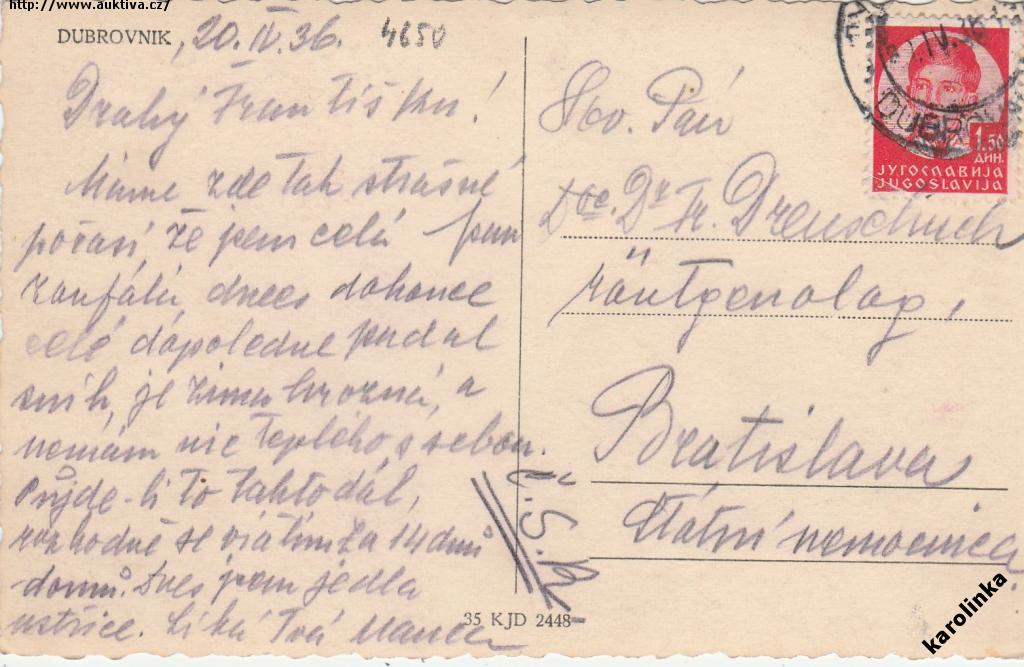 http://www.auktiva.cz/
DUBROVNIK, 20. IV. 36. 4650
Drahý Františku!
Máme zde tak strašné
počasí, že jsem celá
zoufalá, dnes dokonce
celé dopoledne padal
sníh, je zima hrozná, a
nemám nic teplého s sebou.
Půjde-li to takto dál,
rozhodně se vrátím za 14 dnů
domů. Dnes jsem jedla
ústřice. Líbá Tvá
35 KJD 2448
Č.S.R.
Doc. Dr Fr.
röntgenolog,
Bratislava
Státní nemocnice
DUBROV
1.50
ДИН.
ЈУГОСЛАВИЈА
JUGOSLAVIJA
karolinka